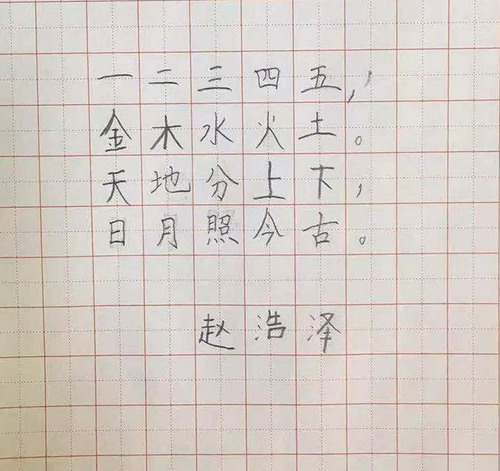 一二三四五,
金木水火土。
天地分上下,
日月照今古。
赵浩泽